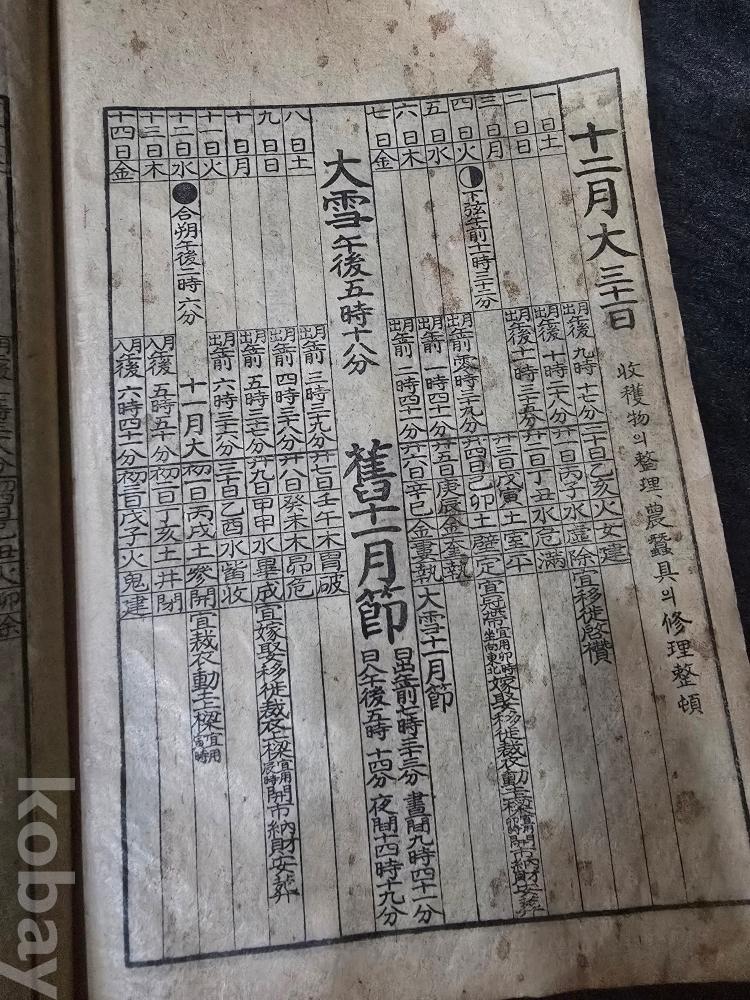 十二月大 三十一日
收穫物의整理、農蠶具의修理整頓
一日土 月出 午後 九時 十七分 三十日乙亥火女建
二日日 月出 午後 十時二十八分 丙子水虛除宜移徙啓攢
三日月 月出 午後十一時三十五分 丁丑水危滿
四日火 下弦午前十一時三十二分 戊寅土室平
五日水 月出 午前 零時三十九分 廿四日己卯土壁定宜冠帶宜用卯時坐向東北嫁娶移徙裁衣動土
六日木 月出 午前 一時四十分 廿五日庚辰金奎執
七日金 月出 午前 二時四十分 廿六日辛巳金婁執 大雪十一月節
大雪 午後五時十八分 舊十一月節
日出午前七時三十三分 晝間九時四十一分
日入午後五時 十四分 夜間十四時十九分
八日土 月出 午前 三時三九分 廿七日壬午木胃破
九日日 月出 午前 四時三十八分 廿八日癸未木昴危
十日月 月出 午前 五時三十七分 廿九日甲申水畢成宜嫁娶移徙裁衣上樑宜用辰時開市納財安葬
十一日火 月出 午前 六時三十六分 三十日乙酉水觜收
十二日水 合朔午後二時六分 十一月大 初一日丙戌土參開宜裁衣動土上樑宜用寅時
十三日木 月入 午後 五時五十分 初二日丁亥土井閉
十四日金 月入 午後 六時四十分 初三日戊子火鬼建
kobay